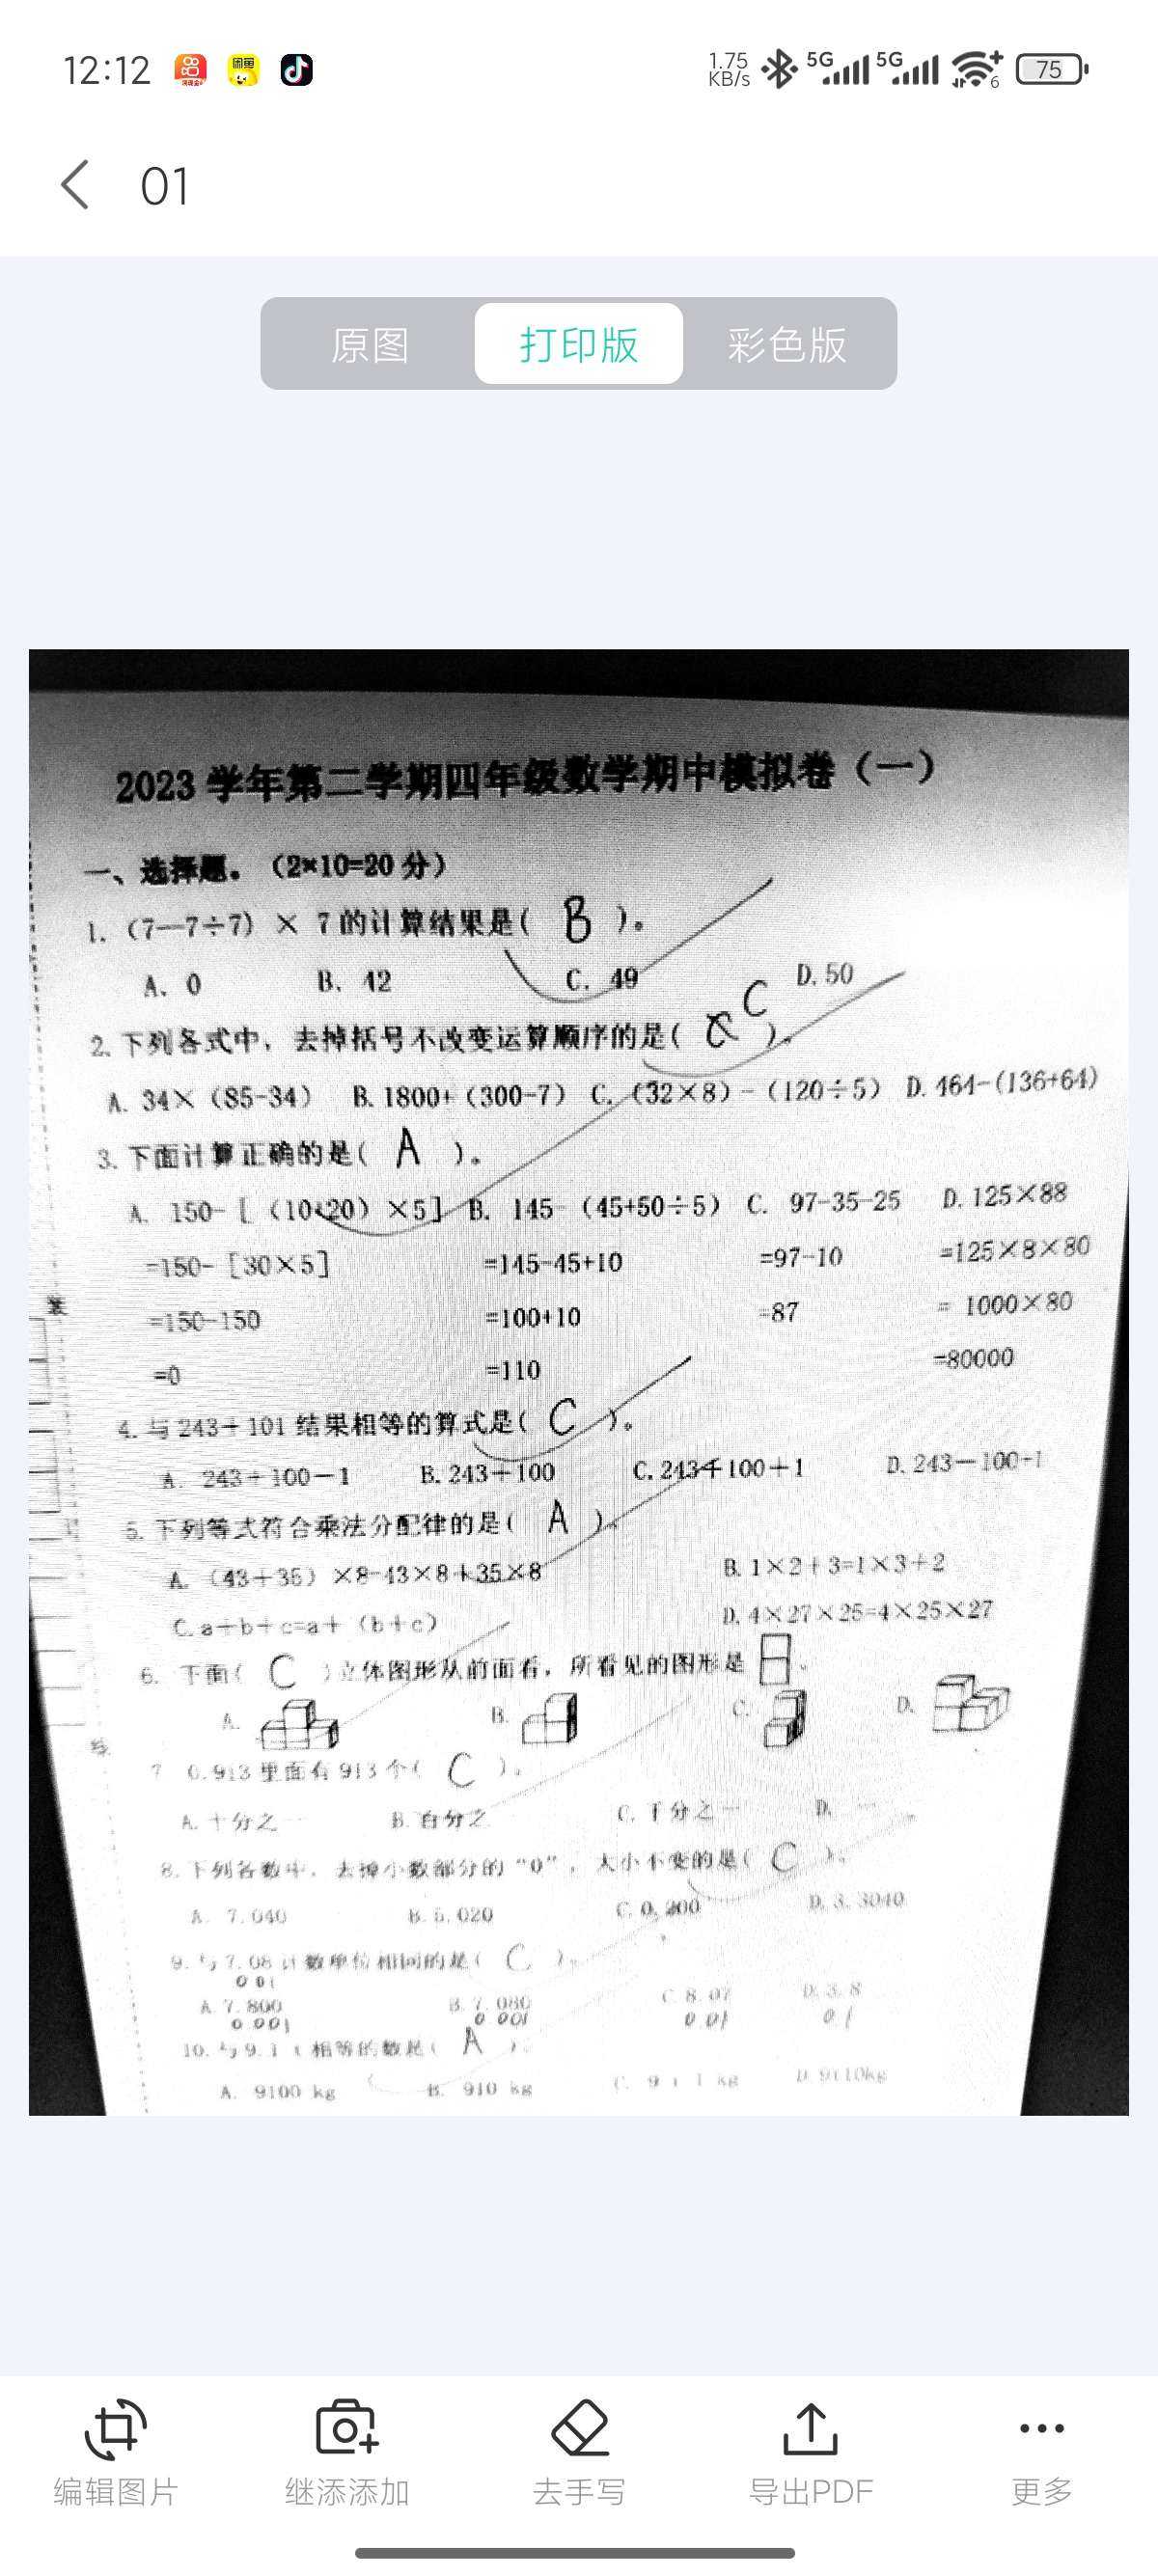 12:12
闲鱼
1.75 KB/s 5G 5G 6 75
01
原图 打印版 彩色版
2023学年第二学期四年级数学期中模拟卷（一）
一、选择题。（2×10=20分）
1.（7—7÷7）× 7的计算结果是( B )。
A、0 B、42 C. 49 D.50
C
2.下列各式中，去掉括号不改变运算顺序的是( )。
A. 34×（85-34） B.1800+（300-7） C.（32×8）-（120÷5） D.464-(136+64)
3.下面计算正确的是( A )。
A. 150-［（10+20）×5］ B. 145-（45+50÷5） C. 97-35-25 D.125×88
=150-［30×5］ =145-45+10 =97-10 =125×8×80
=150-150 =100+10 =87 = 1000×80
=0 =110 =80000
4.与243＋101结果相等的算式是( C )。
A. 243＋100－1 B.243＋100 C.243＋100＋1 D.243－100-1
5.下列等式符合乘法分配律的是( A )。
A.（43＋35）×8=43×8＋35×8 B.1×2＋3=1×3＋2
C.a＋b＋c=a＋（b＋c） D.4×27×25=4×25×27
6. 下面( C )立体图形从前面看，所看见的图形是 。
A. B. C. D.
线
7 0.913里面有913个( C )。
A.十分之一 B.百分之 C.千分之一 D.一
8.下列各数中，去掉小数部分的“0”，大小不变的是( C )。
A. 7.040 B.5.020 C.0.200 D.3.3040
9.与7.08计数单位相同的是( C )。
0 01
A.7.800 B.7.080 C.8.07 D.3.8
0.001 0 001 0.01 0 1
10.与9.1 t相等的数是( A )。
A. 9100 kg B. 910 kg C. 9 t 1 kg D.9t10kg
编辑图片 继添添加 去手写 导出PDF 更多